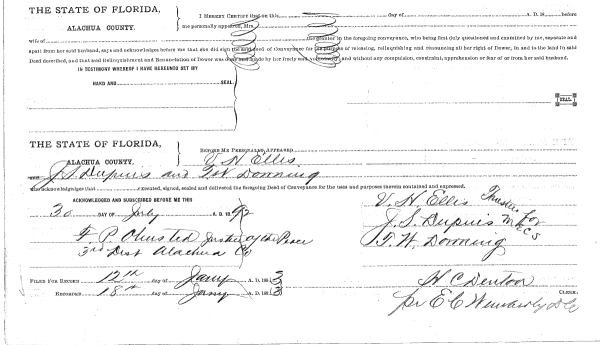 THE STATE OF FLORIDA,
ALACHUA COUNTY.
I HEREBY CERTIFY that on this day of A.D. 18 before
me personally appeared, Mrs.
wife of the grantor in the foregoing conveyance, who being first duly questioned and examined by me, separate and
apart from her said husband, says and acknowledges before me that she did sign the said Deed of Conveyance for the purpose of releasing, relinquishing and renouncing all her right of Dower, in and to the land in said
Deed described, and that said Relinquishment and Renunciation of Dower was made by her freely and voluntarily and without any compulsion, constraint, apprehension or fear of or from her said husband.
IN TESTIMONY WHEREOF I HAVE HEREUNTO SET MY
HAND AND SEAL
SEAL
THE STATE OF FLORIDA,
ALACHUA COUNTY.
BEFORE ME PERSONALLY APPEARED
V. H. Ellis
J. S. Dupuis and T. W. Downing
who acknowledges that executed, signed, sealed and delivered the foregoing Deed of Conveyance for the uses and purposes therein contained and expressed.
ACKNOWLEDGED AND SUBSCRIBED BEFORE ME THIS
30 DAY OF July A. D. 1892
V. H. Ellis
J. S. Dupuis
T. W. Downing
Trustees for
F. P. Olmsted Justice of the Peace
3rd Dist Alachua Co
FILED FOR RECORD 12th day of Jany A. D. 1893
RECORDED 18th day of Jany 1893
H C Denton
CLERK.
pr E C Wimberly D C